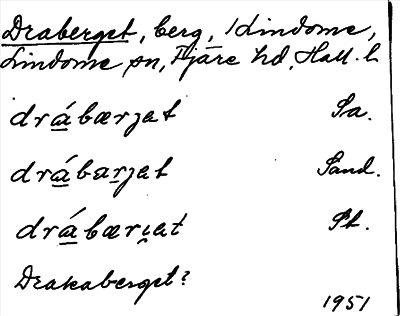 Draberget, berg, Lindome,
Lindome sn, Fjäre hd, Hall. l.
drábærjet Sa.
drábarjet Sand.
drábæri̯et St.
Drakaberget?
1951